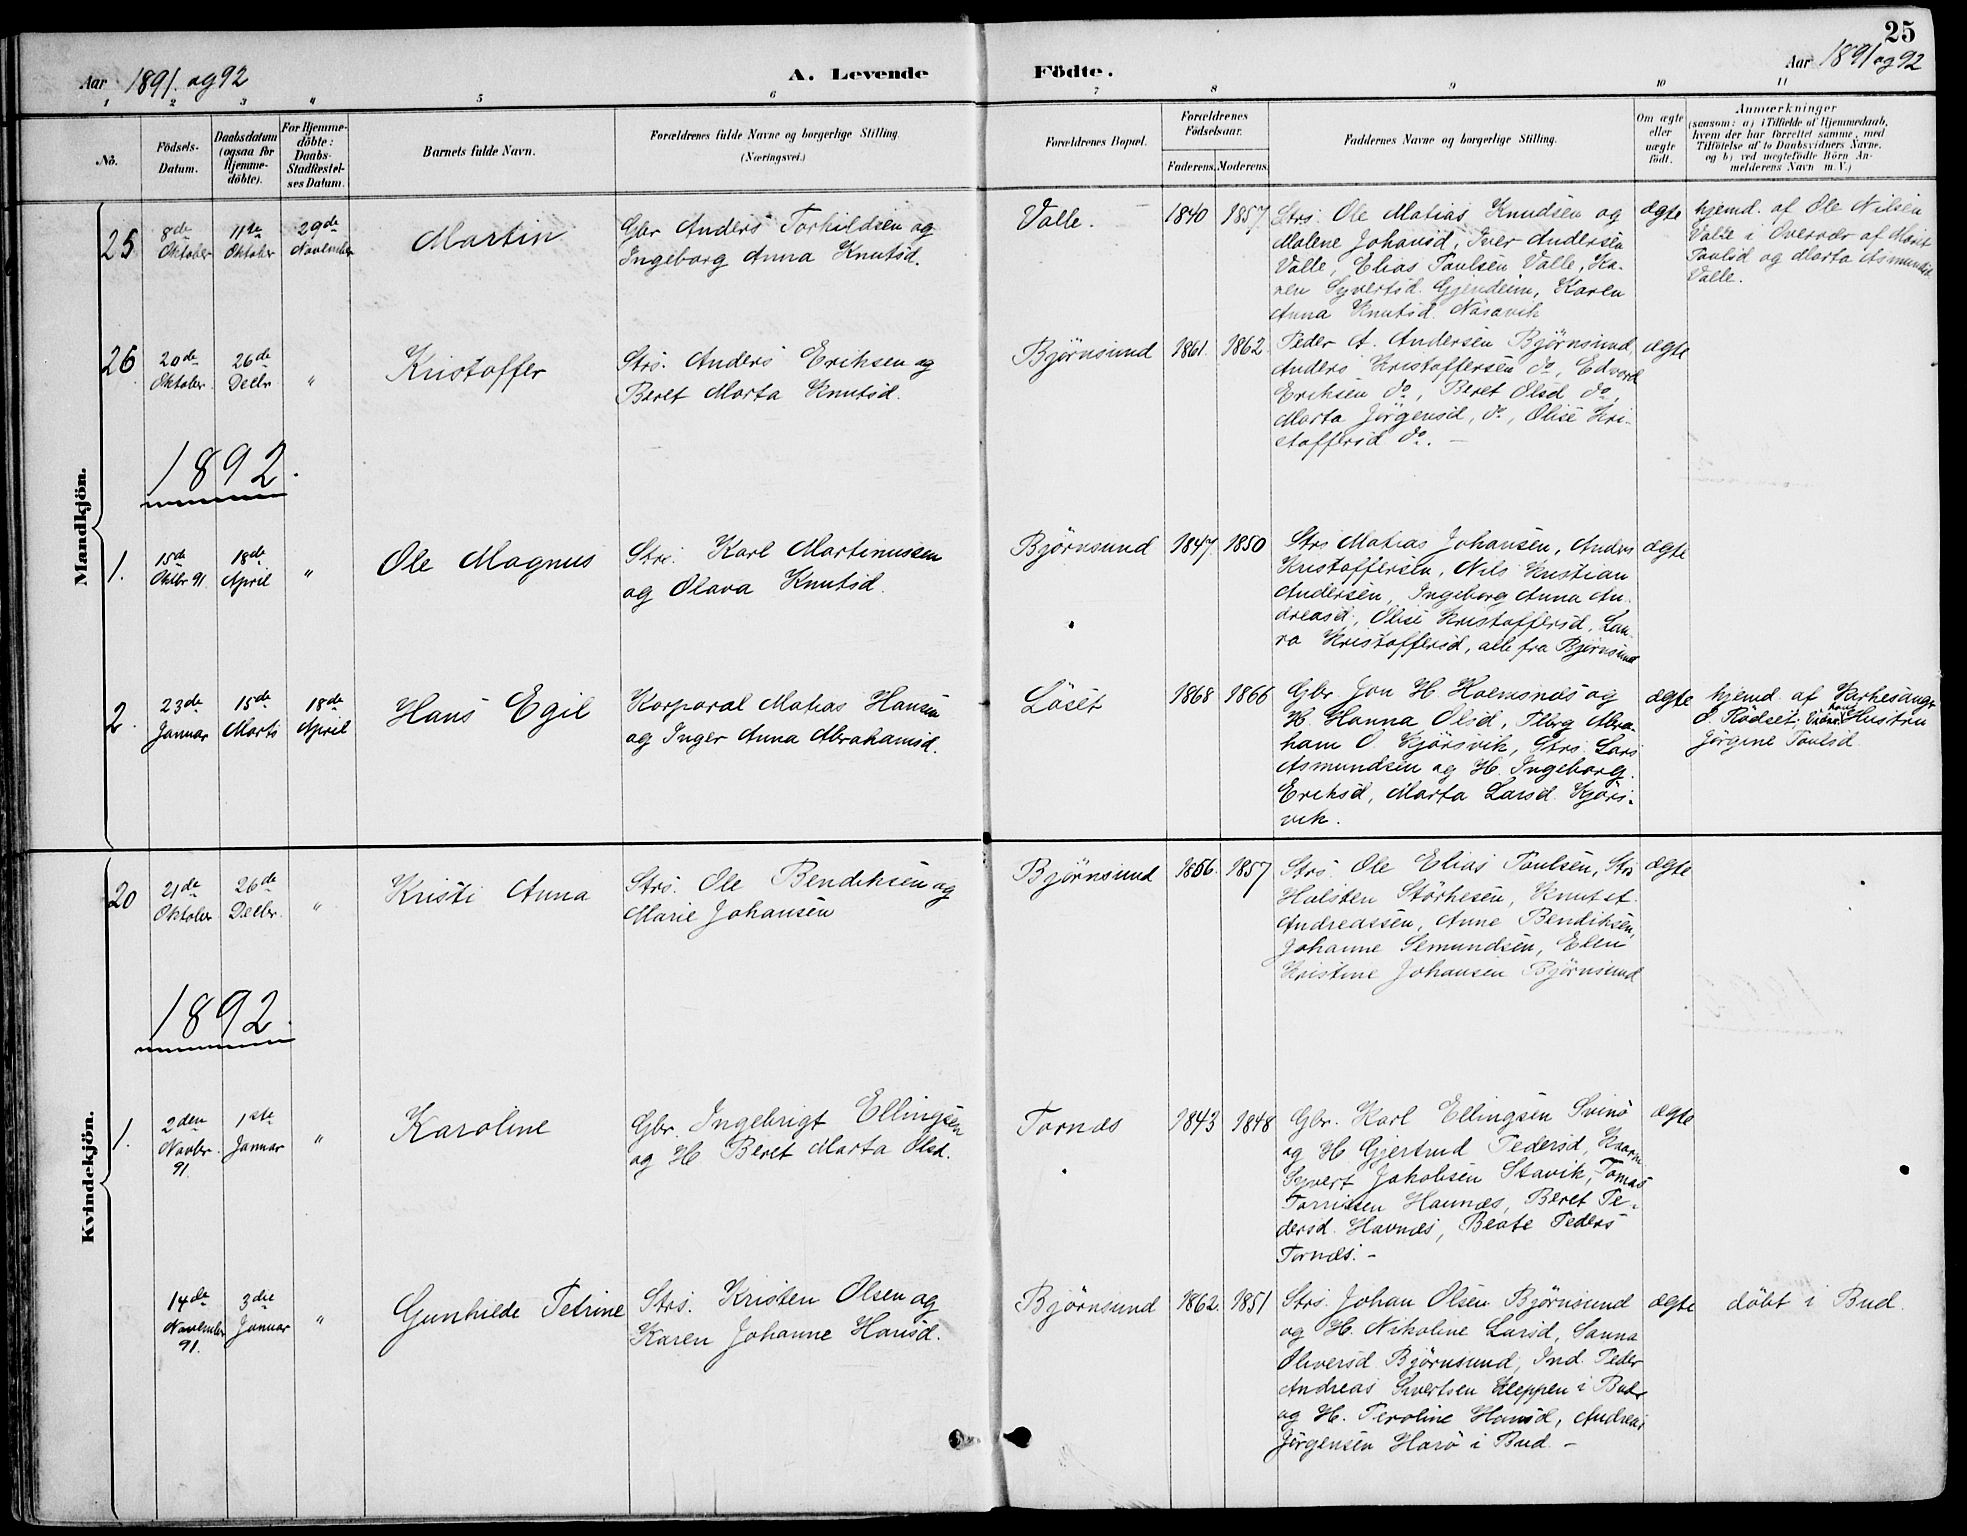 25
Aar 1891. og 92
A. Levende Födte.
Aar 1891 og 92
1 2 3 4 5 6 7 8 9 10 11
No.
Födsels-
Datum.
Daabsdatum
(ogsaa for
Hjemme-
döbte).
For Hjemme-
döbte:
Daabs-
Stadfæstel-
ses Datum.
Barnets fulde Navn.
Forældrenes fulde Navne og borgerlige Stilling.
(Næringsvei.)
Forældrenes Bopæl.
Forældrenes
Födselsaar.
Faderens. Moderens.
Faddernes Navne og borgerlige Stilling.
Om ægte
eller
uægte
födt.
Anmærkninger
(saasom: a) i Tilfælde af Hjemmedaab,
hvem der har forrettet samme, med
Tilföielse af to Daabsvidners Navne,
og b) ved uægtefödte Börn An-
melderens Navn m. V.)
Mandkjön.
25
8de
Oktober
11te
Oktober
29de
November
Martin
Gbr Anders Torhildsen og
Ingeborg Anna Knutsd.
Valle.
1840 1857
Strs. Ole Matias Knudsen og
Malene Johansd, Iver Andersen
Valle, Elias Paulsen Valle, Ka-
ren Syvertsd. Gjendem, Karen
Anna Knutsd. Näsavik
ægte
hjemd. af Ole Nilsen
Valle i Overvær af Marit
Paulsd og Marta Asmundsd
Valle.
26
20de
Oktober.
26de
Decbr
"
Kristoffer
Strs. Anders Eriksen og
Beret Marta Knutsd.
Björnsund
1861. 1862.
Peder A. Andersen Björnsund
Anders Kristoffersen do, Edvard
Eriksen do, Beret Olsd do,
Marta Jörgensd, do, Olise Kri-
stoffersd do. –
ægte
1892.
1.
15de
Oktbr 91.
18de
April
"
Ole Magnus
Strs. Karl Martinussen
og Olava Knutsd.
Björnsund
1847. 1850
Strs Matias Johansen, Anders
Kristoffersen, Nils Kristian
Andersen, Ingeborg Anna An-
dreasd, Olise Kristoffersd, Lau-
ra Kristoffersd, alle fra Björnsund
ægte
2.
23de
Januar
15de
Marts
18de
April
Hans Egil
Korporal Matias Hansen
og Inger Anna Abrahamsd.
Löset
1868 1866
Gbr Jon H. Holmsnæs og
H. Hanna Olsd, Pbrg Abra-
ham O. Kjörsvik, Strs. Lars
Asmundsen og H. Ingeborg
Eriksd, Marta Larsd. Kjörs-
vik.
ægte
hjemd. af Kirkesangr
O. Rödset. Vidner: hans Hustru
Jörgine Paulsd
Kvindekjön.
20
21de
Oktober
26de
Decbr.
"
Kristi Anna
Strs. Ole Bendiksen og
Marie Johansen
Björnsund
1856. 1857
Strs. Ole Elias Paulsen, Strs
Halsten Störkesen, Knut A.
Andreassen, Anne Bendiksen,
Johanne Semundsen, Elen
Kristine Johansen Björnsund
ægte
1892.
1.
2den
Novbr.
91.
1ste
Januar
"
Karoline
Gbr. Ingebrigt Ellingsen
og H Beret Marta Olsd.
Tornæs
1843 1848
Gbr. Karl Ellingsen Svinö
og H Gjertrud Pedersd,
Syvert Jakobsen Stavik, Tomas
Havnæs, Beret Pe-
dersd. Havnæs, Beate Peders
Tornæs. –
ægte
14de
November
91.
3die
Januar
"
Gunhilde Petrine
Strs. Kristen Olsen og
Karen Johanne Hansd.
Björnsund
1862. 1851
Strs. Johan Olsen Björnsund
og H. Nikoline Larsd, Sanna
Oliversd Björnsund, Ind. Peder
Andreas Sivertsen Kleppen i Bud
og H. Peroline Hansd, Andreas
Jörgensen Harö i Bud –
ægte
döbt i Bud.